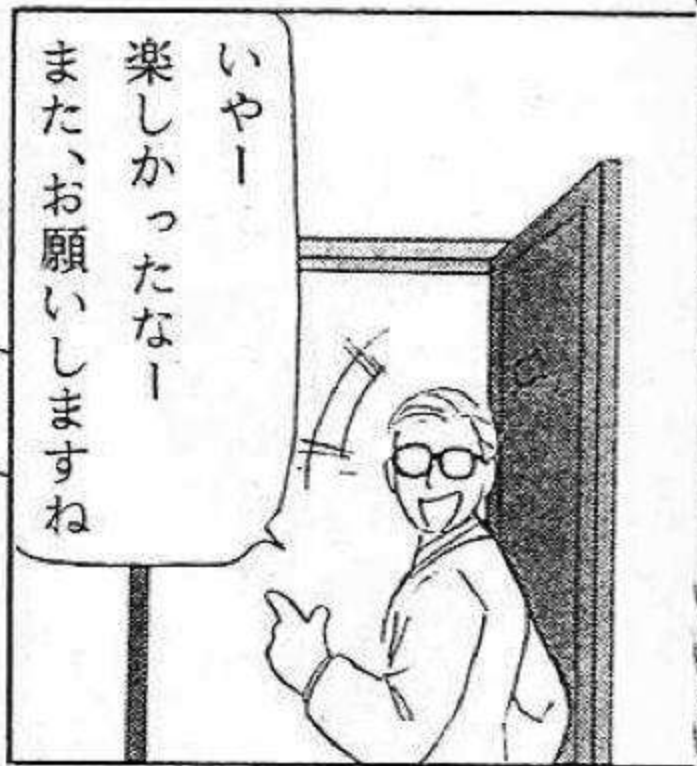 いやー
楽しかったなー
また、お願いしますね